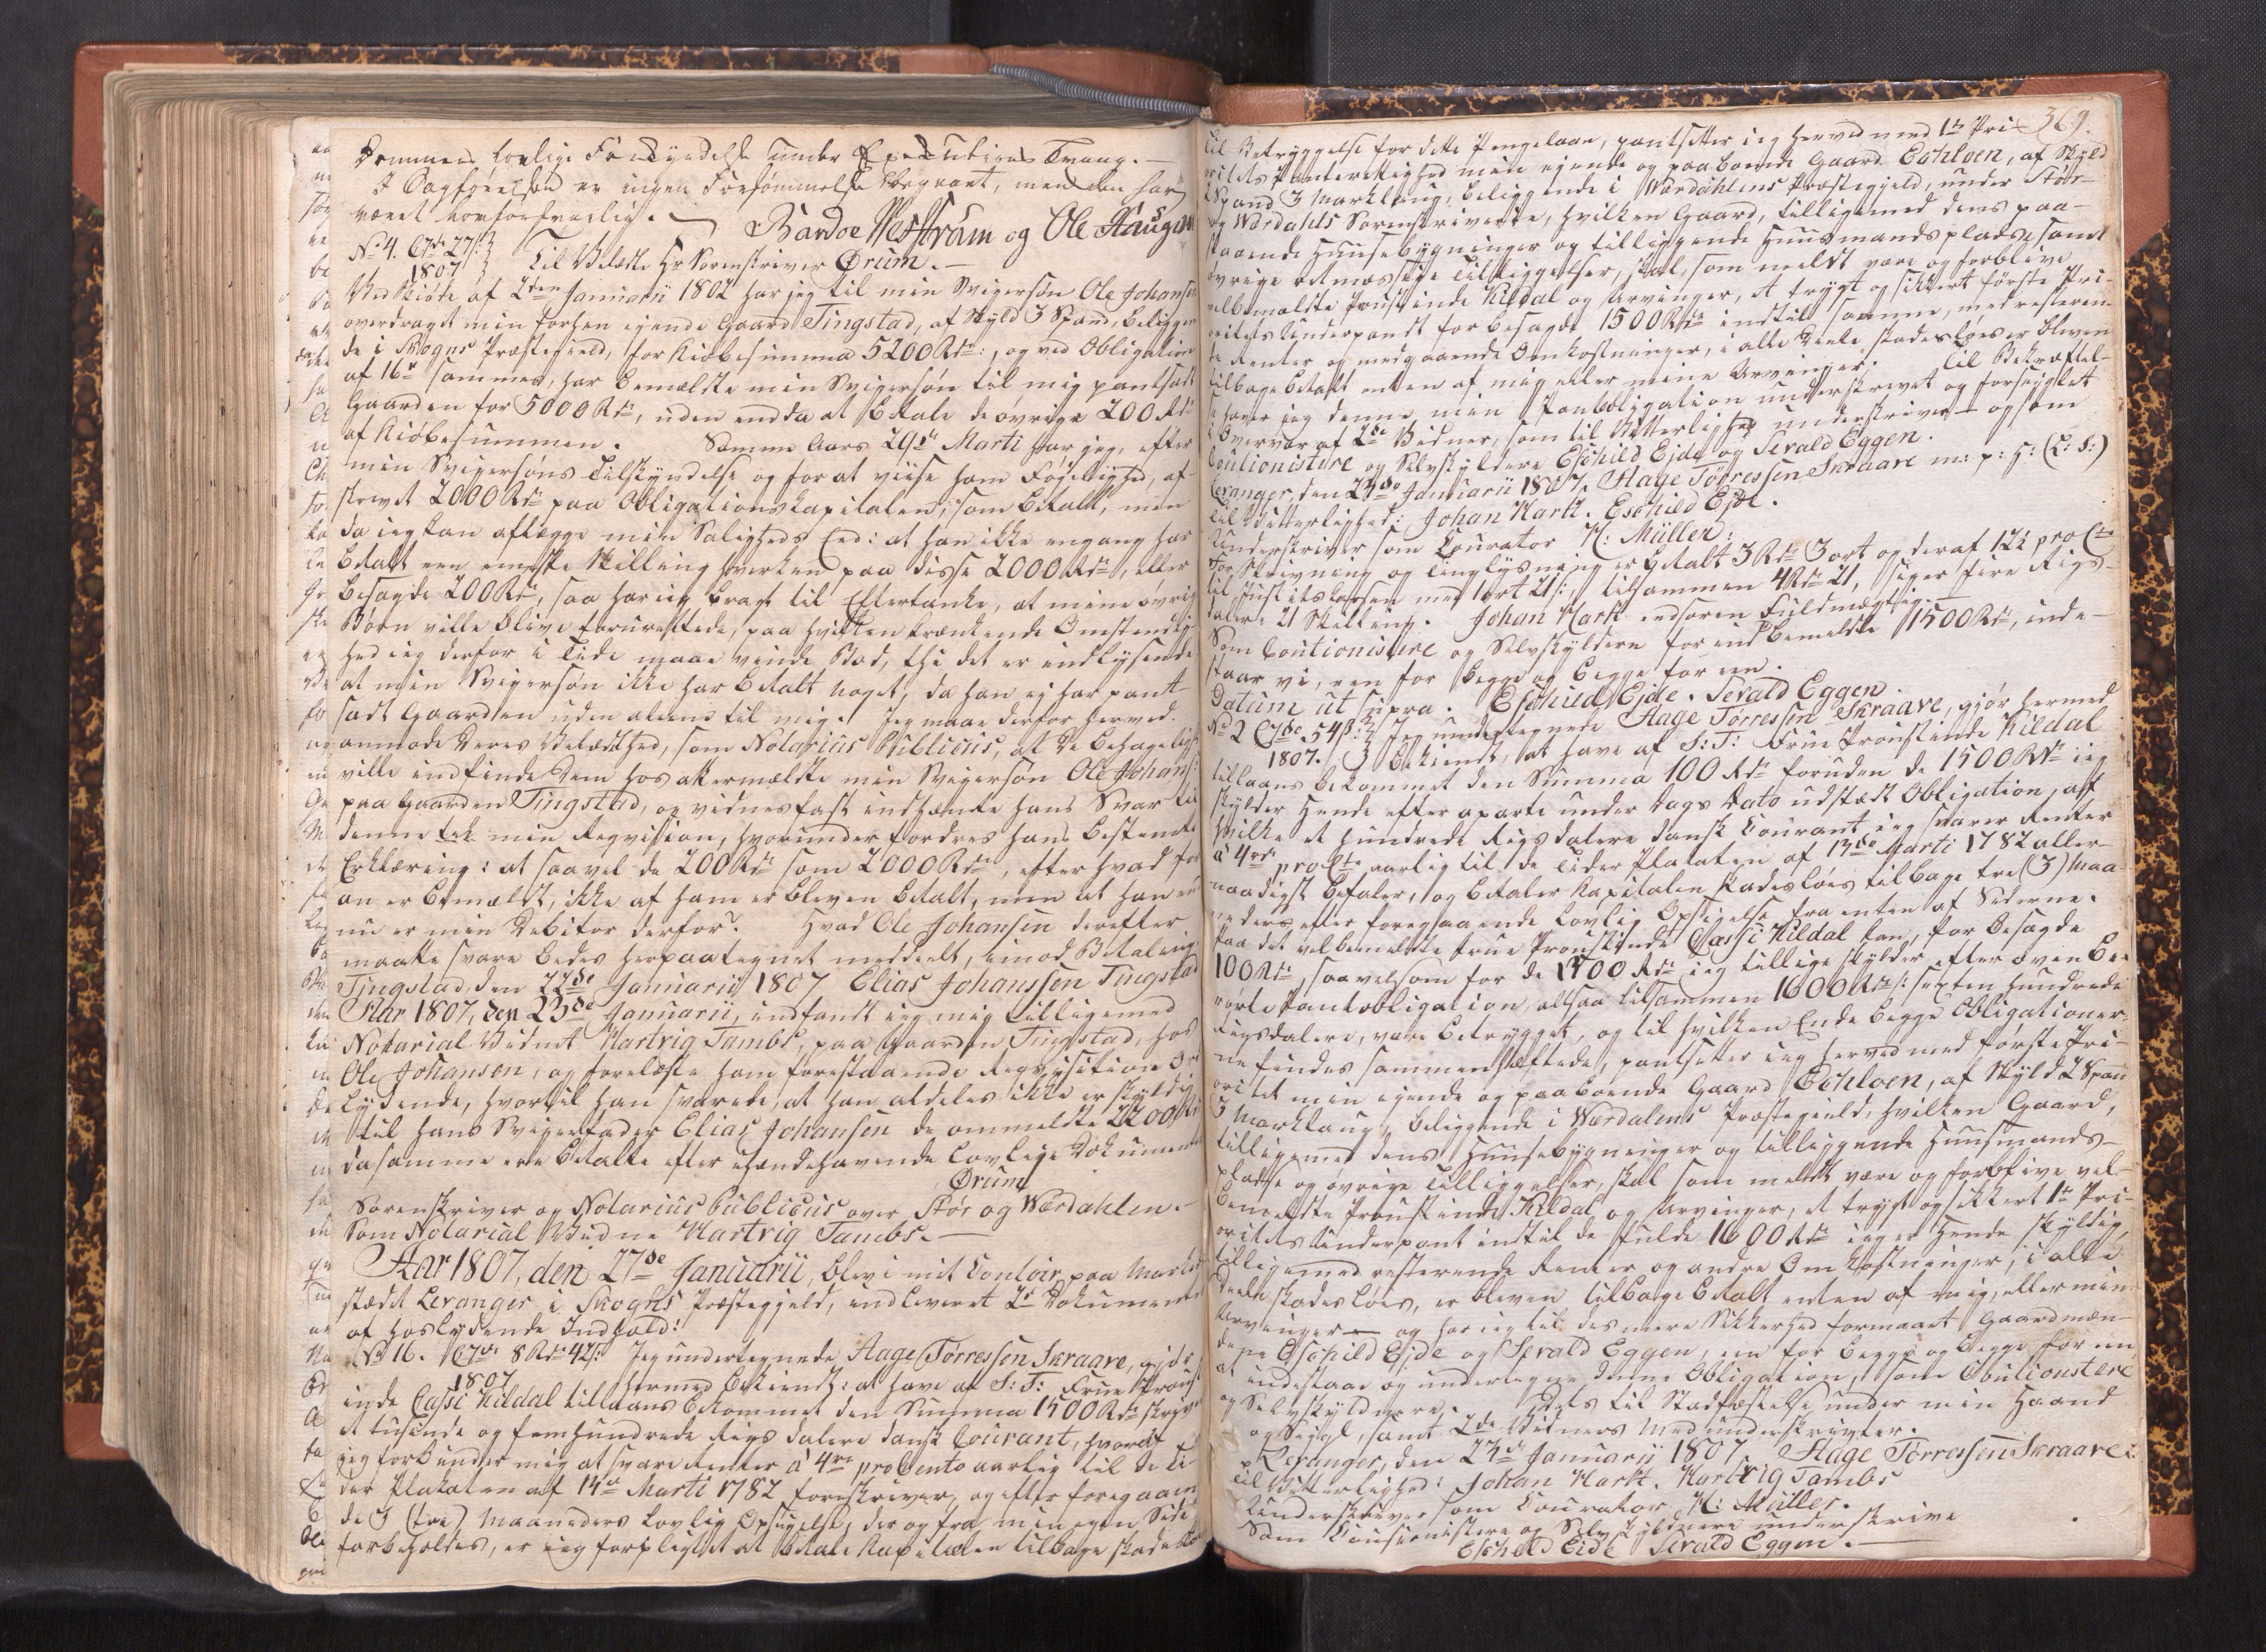 Dommens lovlige Forkyndelse under Executions Tvang. —
I Sagførelsen er ingen Forsømmelse begaaet, men den har
været lovforsvarlig. — Bardoe Westrum og Ole Haugen
No 4. C7de 27 s: Til Velædle Hr Sorenskriver Ørum. —
1807
Ved Skiøde af 2den Januarii 1802 har jeg til min Svigersøn Ole Johansen
overdraget min forhen ejende Gaard Tingstad, af Skyld 3 Spand, beliggen
de i Skogns Præstegield, for Kiøbesumma 5200 Rdr:, og ved Obligation
af 16de sammes, har bemældte min Svigersøn til mig pantsadt
Gaarden for 5000 Rdr, uden endda at betale de øvrige 200 Rdr
af Kiøbesummen. Samme Aars 29de Marti har jeg, efter
min Svigersøns Tilskyndelse og for at viise ham Føjelighed, af-
skrevet 2000 Rdr paa Obligationskapitalen, som betalt, men
da jeg kan aflægge min Saligheds Eed: at han ikke engang har
betalt een eneste Skilling hverken paa disse 2000 Rdr, eller
besagde 200 Rdr, saa har jeg bragt til Eftertanke, at mine øvrig
Børn ville blive forurettede, paa hvilken krænkende Omstændig-
hed jeg derfor i Tide maae vinde Bod, thi det er indlysende
at min Svigersøn ikke har betalt noget, da han ej har pant-
sadt Gaarden uden alene til mig. Jeg maae derfor herved
anmode Deres Velædelhed, som Notarius Publicus, at De behageligst
ville indfinde Dem hos akermældte min Svigersøn Ole Johans:
paa Gaarden Tingstad, og vidnesfast indhænte hans Svar til
denne min Reqvisition, hvorunder fordres hans bestemte
Erklæring: at saavel de 200 Rdr som 2000 Rdr, efter hvad for
an er bemældt, ikke af ham er bleven betalt, men at han end
nu er min Debitor derfor? Hvad Ole Johansen derefter
maatte svare bedes herpaategnet meddeelt, imod Betaling.
Tingstad, den 22de Januarii 1807 Elias Johanssen Tingstad
Aar 1807, den 23de Januarii, indfandt jeg mig tilligemed
Notarial Vidnet Hartvig Tambs, paa Gaarden Tingstad, hos
Ole Johansen, og forelæste ham forestaaende Reqvisition Ord
lydende, hvortil han svarede, at han aldeles ikke er skyldig
til hans Svigerfader Elias Johansen de ommeldte 2200 Rd
da samme ere betalte efter ihændehavende lovlige Dokumenter
Ørum
Sorenskriver og Notarius Publicus over Stør og Værdahlen. —
Som Notarial Vidne Hartvig Tambs. —
Aar 1807, den 27de Januarii, blev i mit Contoir paa Marked
stædet Levanger i Skogns Præstegjeld, indleveret 2de Dokumenter
af hoslydende Indhold:
No 16. C7de 8 Rdr 42 s: Jeg undertegnede Aage Tørressen Skraave, gjør
1807 hermed bekiendt: at have af S: T: Frue Proust
inde Cassi Kildal tillaans bekommet den Summa 1500 Rdr skriver
et tusinde og femhundrede Rigsdalere dansk Courant, hvoraf
jeg forbinder mig at svare Renter á 4re procento aarlig til de Ti-
der Plakaten af 14de Marti 1782 foreskriver, og efter foregaaen
de 3 (tre) Maaneders lovlig Opsigelse, der og fra min egen Side
forbeholdes, er jeg forpligtet at betale Kapitalen tilbage skadesløs
369.
Til Betryggelse for dette Pengelaan, pantsetter jeg herved med 1te Pri-
oritets Panterettighed min ejende og paaboende Gaard Echloen, af Skyld
2 Spand 3 Marklaug, beliggende i Wærdahlens Præstegjeld, under Stør-
og Wærdahls Sorenskriverie, hvilken Gaard, tilligemed dens paa-
staaende Huusebygninger og tilliggende Huusmandspladse, samt
øvrige retmæssige Tilliggelser, skal, som meldt være og forblive
velbemældte Proustinde Kildal og Arvinger, et trygt og sikkert første Pri-
oritets Underpandt for besagde 1500 Rdr indtil samme, med resteren
de Renter og medgaaende Omkostninger, i alle Deele skadesløs er bleven
tilbagebetalt enten af mig eller mine Arvinger. Til Bekræftel-
se haver jeg denne min Pantobligation underskrevet og forseiglet
i Overvær af 2de Vidner, som til Vitterlighed underskriver — og som
Coutionistere og Selvskyldere Eschild Ejde og Sevald Eggen.
Levanger, den 23de Januarii 1807, Aage Tørressen Skraave m: p: H: (L: S:)
Til Vitterlighed: Johan Hark. Eschild Ejde.
Underskriver som Courator H: Müller:
For Skrivning og Tinglysning er betalt 3 Rdr 3 ort og deraf 12½ pro Cto
til Justitskassen med 1 ort 21 s:, tilsammen 4 Rdr 21, siger fire Rigs-
daler 21 Skilling. Johan Hark edsoren Fuldmægtig.
Som Coutionistere og Selvskyldere for indbemeldte 1500 Rdr, inde-
staar vi, een for begge og begge for een.
Datum ut supra. Eschild Ejde. Sevald Eggen.
No 2 C7de 54 s: Jeg undertegnede Aage Tørressen Skraave, gjør hermed
1807. bekiendt, at have af S: T: Frue Proustinde Kildal
tillaans bekommet den Summa 100 Rdr foruden de 1500 Rdr jeg
skylder Hende efter aparte under Dags Dato udstædt Obligation, af
hvilke et hundrede Rigsdalere dansk Courant jeg svarer Renter
á 4re pro Cto aarlig til de Tider Plakaten af 13de Marti 1782 aller-
naadigst befaler, og betaler Kapitalen skadesløs tilbage tre (3) Maa-
neders efter foregaaende lovlig Opsigelse fra enten af Siderne.
Paa det velbemældte Frue Proustinde Cassi Kildal kan, for besagde
100 Rdr, saavelsom for de 1500 Rdr jeg tillige skylder efter oven be-
rørte Pantobligation, altsaa tilsammen 1600 Rdr: sexten hundrede
Rigsdalere, være betrygget, og til hvilken Ende begge Obligationer-
ne findes sammenhæftede, pantsetter jeg herved med første Pri-
oritet min ejende og paaboende Gaard Echloen, af Skyld 2 Spand
3 Marklaug, beliggende i Wærdalens Præstegield, hvilken Gaard,
tilligemed dens Huusebygninger og tilliggende Huusmands-
pladse og øvrige Tilliggelser, skal som meldt være og forblive vel-
bemældte Proustinde Kildal og Arvinger, et trygt og sikkert 1te Pri-
oritets Underpant indtil de fulde 1600 Rdr jeg er Hende skyldig,
tilligemed resterende Renter og andre Omkostninger, i alle
Deele skadesløs, er bleven tilbagebetalt enten af mig, eller mine
Arvinger — og har jeg til des meere Sikkerhed formaaet Gaardmæn-
dene Eschild Ejde og Sevald Eggen, een for begge og begge for een
at indestaae og undertegne denne Obligation, som Coutionistere
og Selvskyldnere. Dets til Stadfæstelse under min Haand
og Seigl, samt 2de Vidners Medunderskrivter.
p Levanger, den 23de Januarii 1807 Aage Tørressen Skraave
Til Vitterlighed: Johan Hark. Hartvig Tambs
Underskriver som Courator H: Müller.
Som Cautionistere og Selvskyldnere underskrive
Eschild Eide Sevald Eggen. —